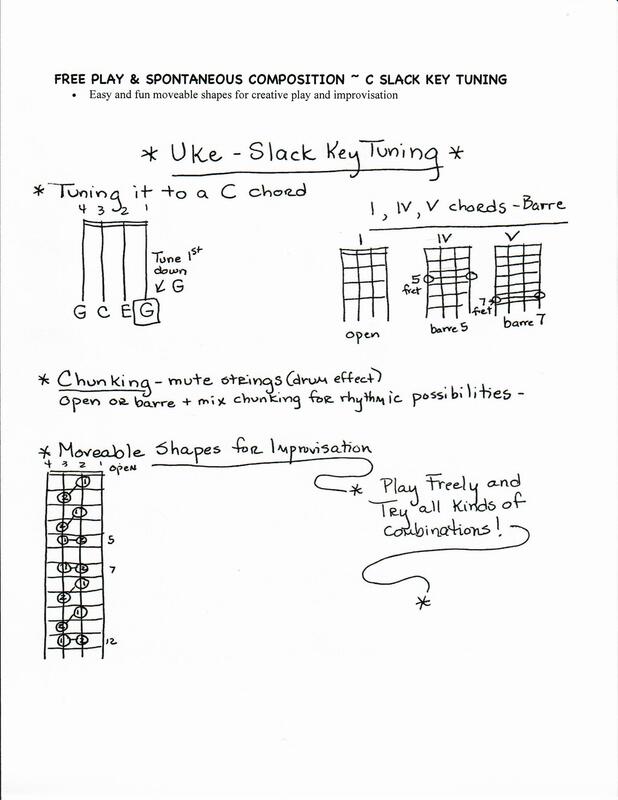 FREE PLAY & SPONTANEOUS COMPOSITION ~ C SLACK KEY TUNING
• Easy and fun moveable shapes for creative play and improvisation
* Uke - Slack Key Tuning *
* Tuning it to a C chord
4 3 2 1
Tune 1st
down
G
G C E G
I, IV, V chords - Barre
I IV V
5
fret
7
fret
open barre 5 barre 7
* Chunking - mute strings (drum effect)
Open or barre + mix chunking for rhythmic possibilities -
* Moveable Shapes for Improvisation
4 3 2 1 open
1
2
1
2
1 2 5
1 2 7
1
2
1
2
1 2 12
* Play Freely and
Try all Kinds of
Combinations!
*